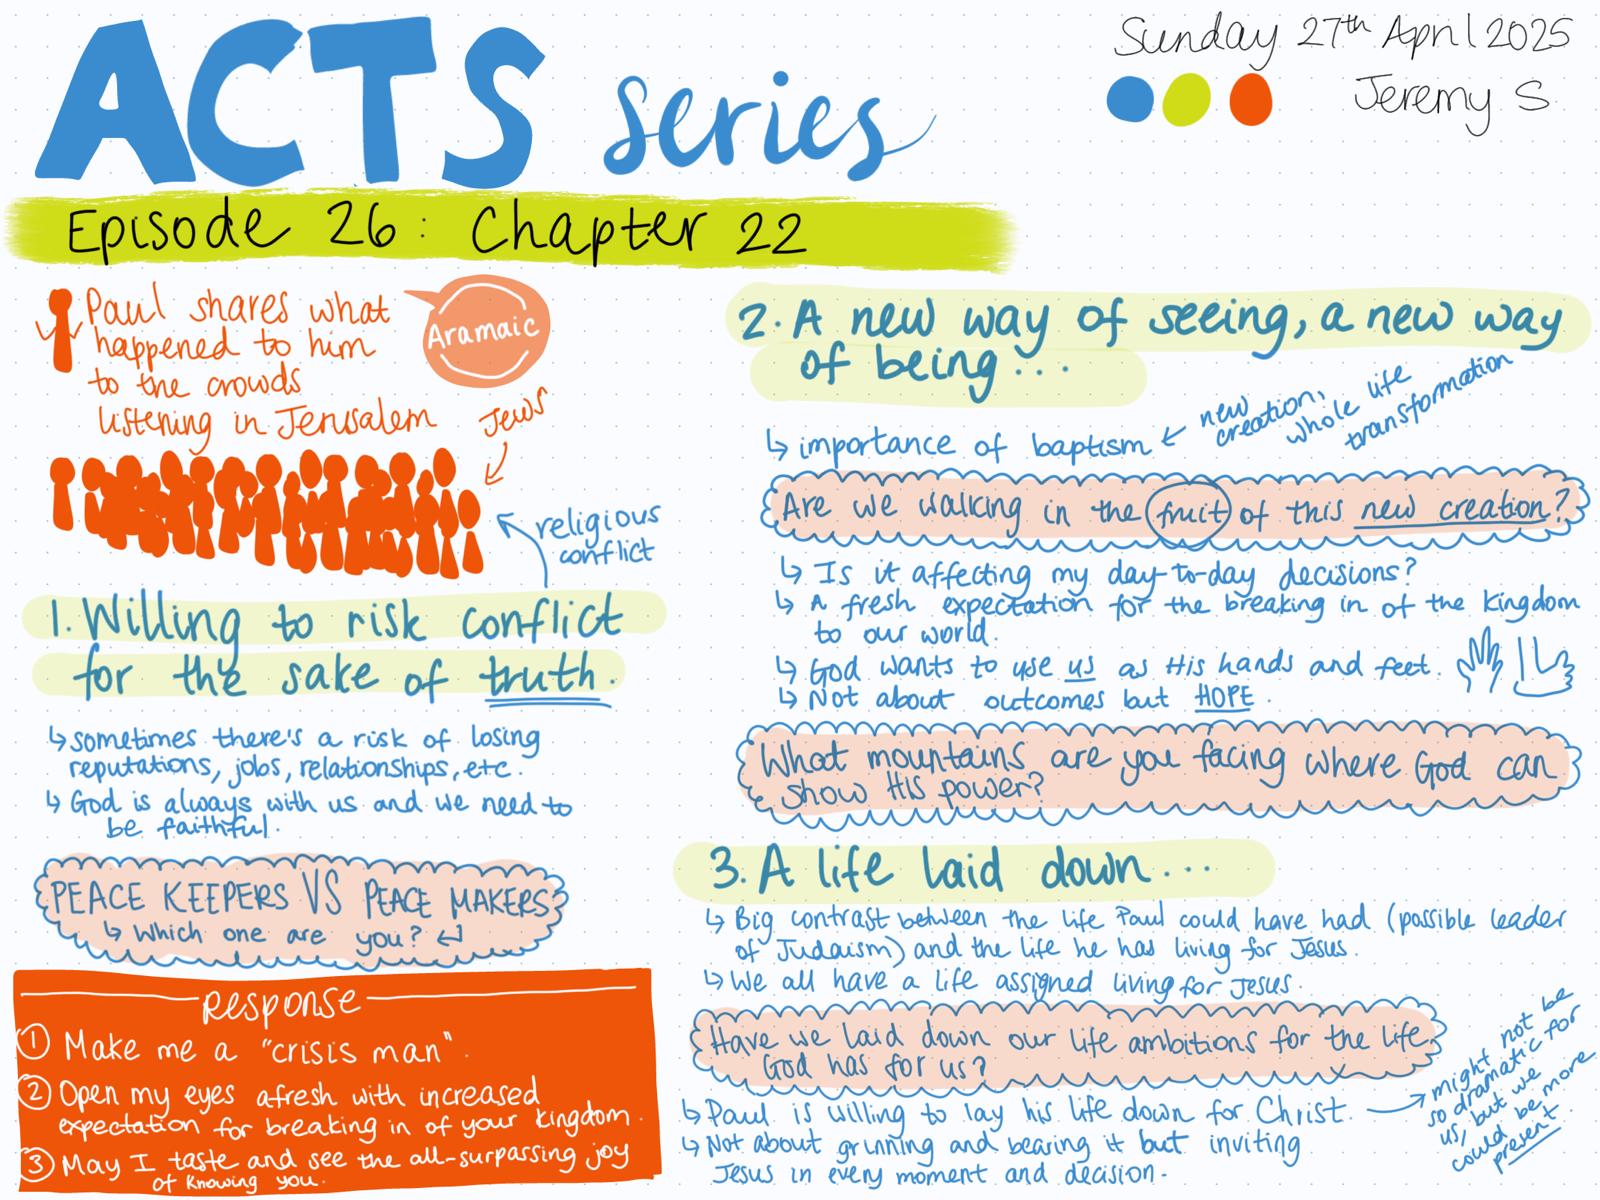 ACTS series
Sunday 27th April 2025
Jeremy S
Episode 26: Chapter 22
Paul shares what
happened to him
to the crowds
listening in Jerusalem
Aramaic
Jews
religious
conflict
1. Willing to risk conflict
for the sake of truth.
↳ sometimes there's a risk of losing
reputations, jobs, relationships, etc.
↳ God is always with us and we need to
be faithful.
PEACE KEEPERS VS PEACE MAKERS
↳ Which one are you? ↵
Response
① Make me a "crisis man".
② Open my eyes afresh with increased
expectation for breaking in of your kingdom.
③ May I taste and see the all-surpassing joy
of knowing you.
2. A new way of seeing, a new way
of being...
↳ importance of baptism ←
new
creation,
whole life
transformation
Are we walking in the fruit of this new creation?
↳ Is it affecting my day-to-day decisions?
↳ A fresh expectation for the breaking in of the kingdom
to our world.
↳ God wants to use us as His hands and feet.
↳ Not about outcomes but HOPE.
What mountains are you facing where God can
show His power?
3. A life laid down...
↳ Big contrast between the life Paul could have had (possible leader
of Judaism) and the life he has living for Jesus.
↳ We all have a life assigned living for Jesus.
Have we laid down our life ambitions for the life
God has for us?
↳ Paul is willing to lay his life down for Christ. →
might not be
so dramatic for
us, but we
could be more
present.
↳ Not about grinning and bearing it but inviting
Jesus in every moment and decision.